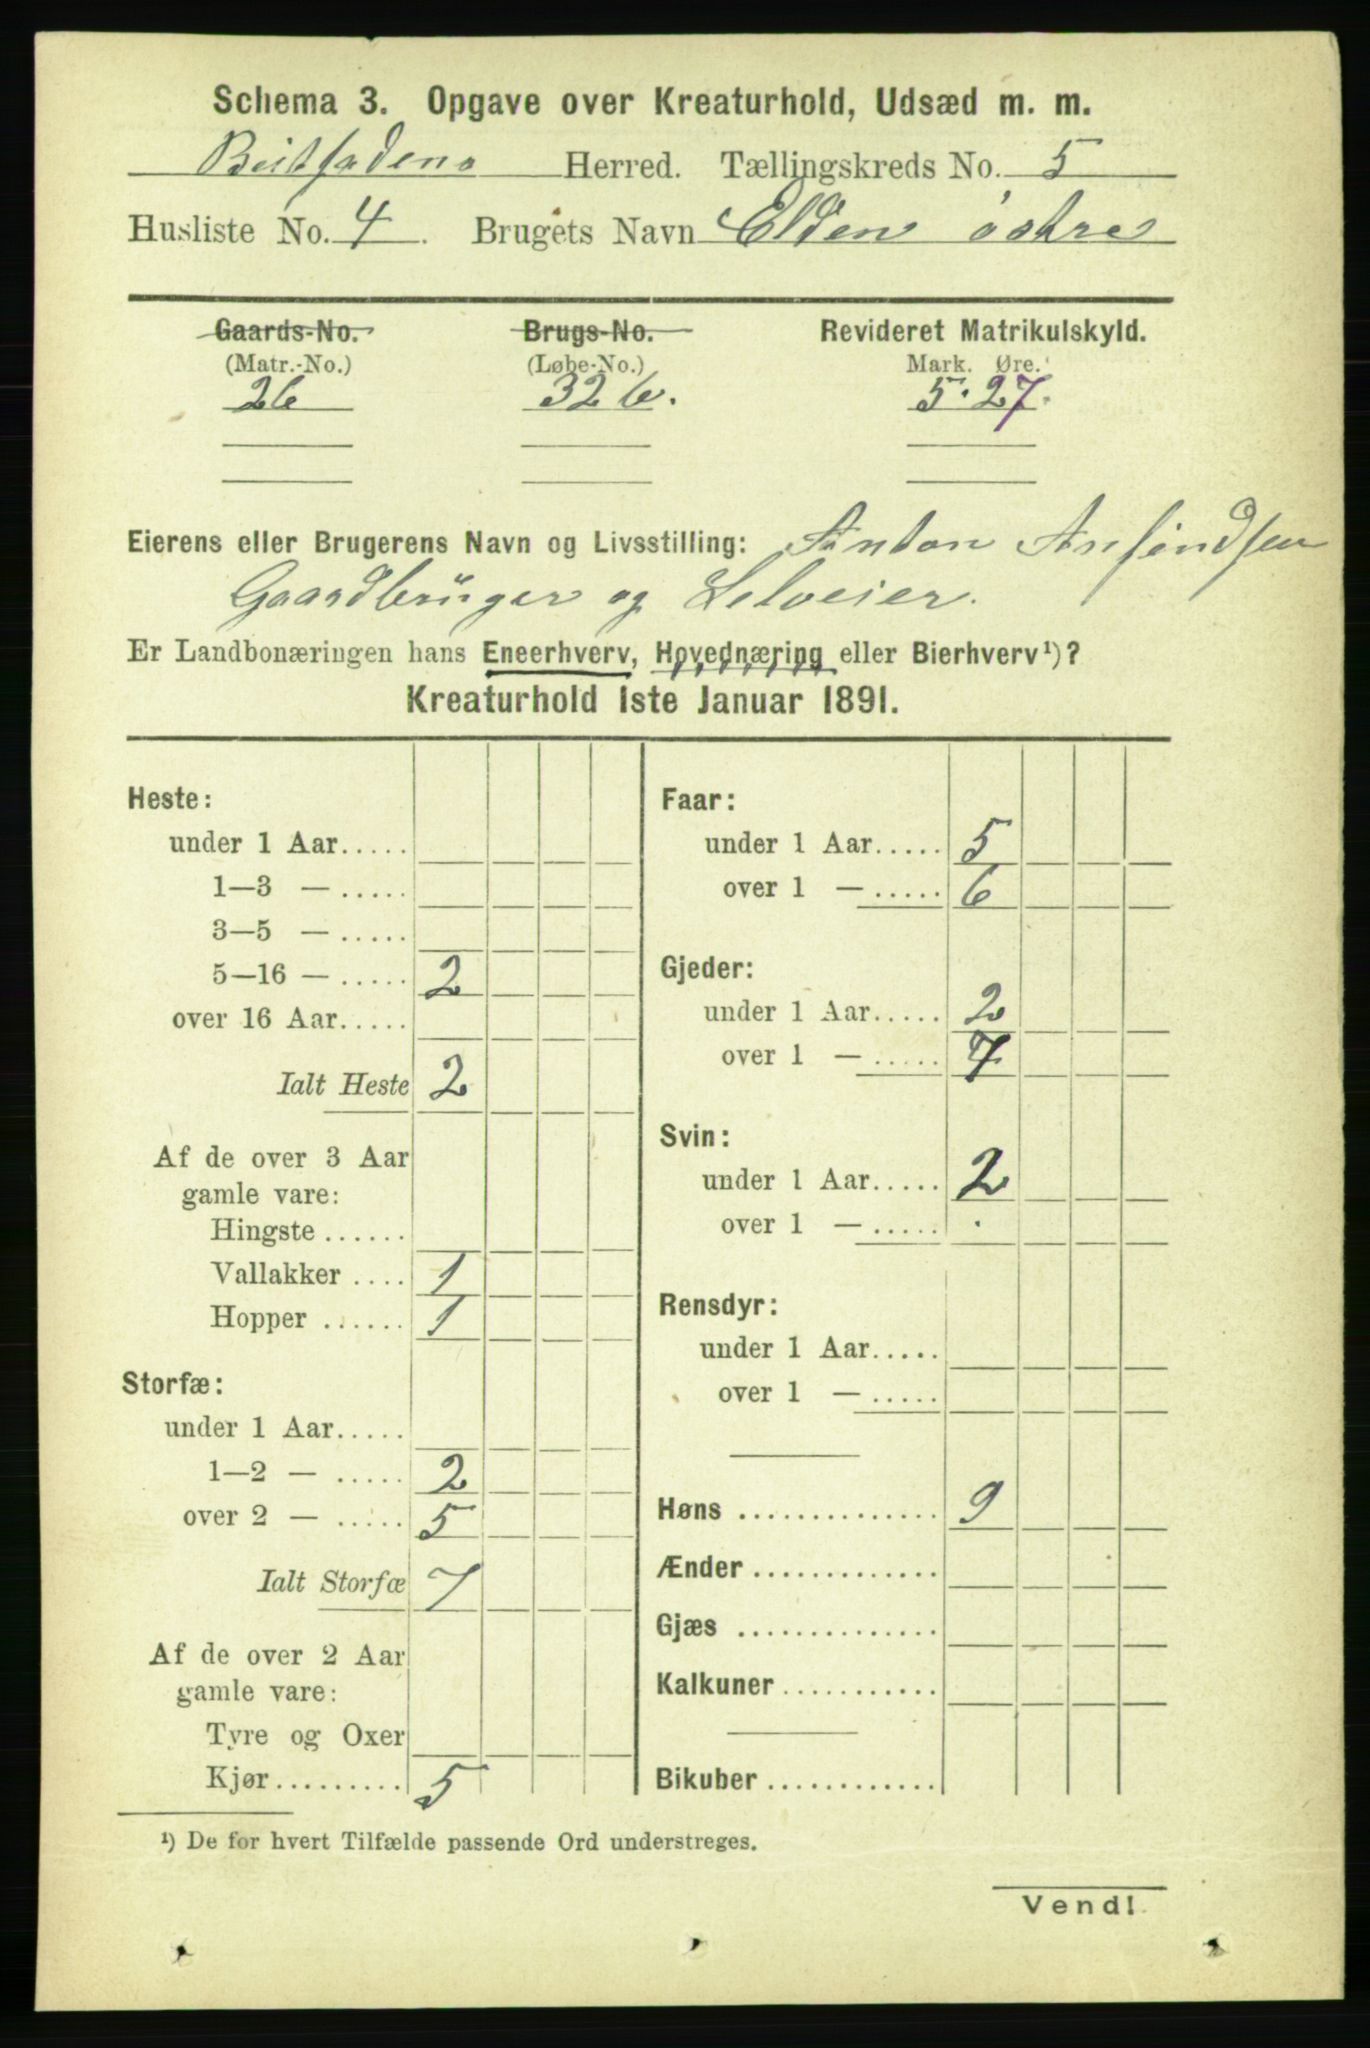 Schema 3. Opgave over Kreaturhold, Udsæd m. m.
Beitstadens Herred. Tællingskreds No. 5
Husliste No. 4. Brugets Navn Elden östre
Gaards-No. Brugs-No. Revideret Matrikulskyld.
(Matr.-No.) (Løbe-No.) Mark. Øre.
26 32 b. 5. 27.
Eierens eller Brugerens Navn og Livsstilling: Anton Arnfindsen
Gaardbrüger og Selveier.
Er Landbonæringen hans Eneerhverv, Hovednæring eller Bierhverv¹)?
Kreaturhold 1ste Januar 1891.
Heste:
under 1 Aar.....
1—3 — .....
3—5 — .....
5—16 — ..... 2
over 16 Aar.....
Ialt Heste 2
Af de over 3 Aar
gamle vare:
Hingste ......
Vallakker .... 1
Hopper ...... 1
Storfæ:
under 1 Aar.....
1—2 — ..... 2
over 2 — ..... 5
Ialt Storfæ 7
Af de over 2 Aar
gamle vare:
Tyre og Oxer
Kjør......... 5
Faar:
under 1 Aar..... 5
over 1 — ..... 6
Gjeder:
under 1 Aar..... 2
over 1 — ..... 7
Svin:
under 1 Aar..... 2
over 1 — ..... .
Rensdyr:
under 1 Aar.....
over 1 — .....
Høns .............. 9
Ænder .............
Gjæs ..............
Kalkuner ...........
Bikuber .............
¹) De for hvert Tilfælde passende Ord understreges.
Vend!